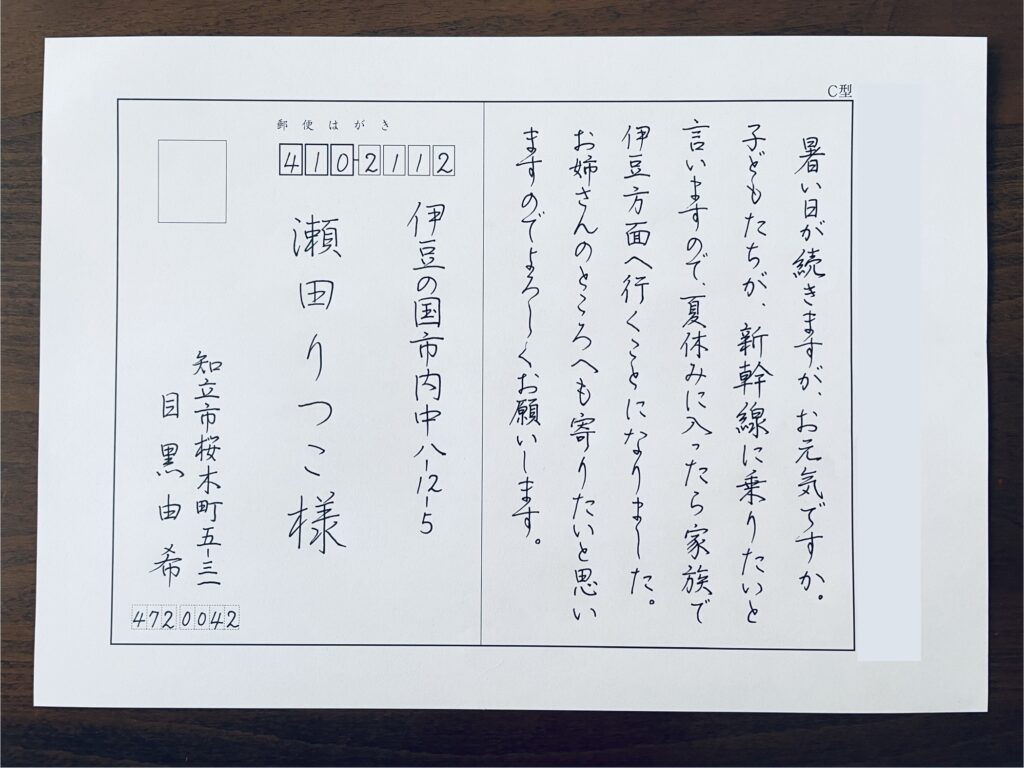 C型
暑い日が続きますが、お元気ですか。
子どもたちが、新幹線に乗りたいと
言いますので、夏休みに入ったら家族で
伊豆方面へ行くことになりました。
お姉さんのところへも寄りたいと思い
ますのでよろしくお願いします。
郵便はがき
410-2112
伊豆の国市内中八-12-5
瀬田りつこ様
知立市桜木町五-三一
目黒由希
4720042